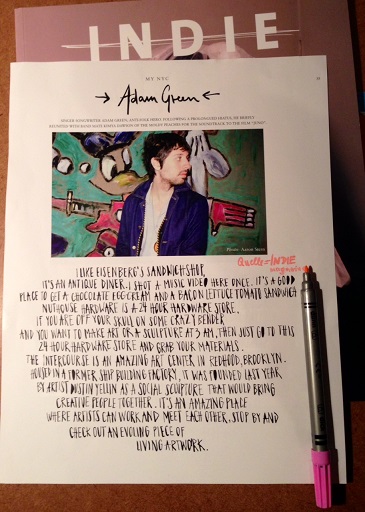 INDIE
MY NYC
→ Adam Green ←
SINGER-SONGWRITER ADAM GREEN, ANTI-FOLK HERO, FOLLOWING A PROLONGED HIATUS, HE BRIEFLY
REUNITED WITH BAND MATE KIMYA DAWSON OF THE MOLDY PEACHES FOR THE SOUNDTRACK TO THE FILM "JUNO"
Photo: Aaron Stern
Quelle = INDIE
magazine
I LIKE EISENBERG'S SANDWICH SHOP,
IT'S AN ANTIQUE DINER. I SHOT A MUSIC VIDEO HERE ONCE. IT'S A GOOD
PLACE TO GET A CHOCOLATE EGG CREAM AND A BACON LETTUCE TOMATO SANDWICH
NUTHOUSE HARDWARE IS A 24 HOUR HARDWARE STORE.
IF YOU ARE OFF YOUR SKULL ON SOME CRAZY BENDER
AND YOU WANT TO MAKE ART OR A SCULPTURE AT 5 AM, THEN JUST GO TO THIS
24 HOUR HARDWARE STORE AND GRAB YOUR MATERIALS.
THE INTERCOURSE IS AN AMAZING ART CENTER IN REDHOOD, BROOKLYN.
HOUSED IN A FORMER SHIP BUILDING FACTORY, IT WAS FOUNDED LAST YEAR
BY ARTIST DUSTIN YELLIN AS A SOCIAL SCULPTURE THAT WOULD BRING
CREATIVE PEOPLE TOGETHER. IT'S AN AMAZING PLACE
WHERE ARTISTS CAN WORK AND MEET EACH OTHER. STOP BY AND
CHECK OUT AN EVOLING PIECE OF
LIVING ARTWORK.